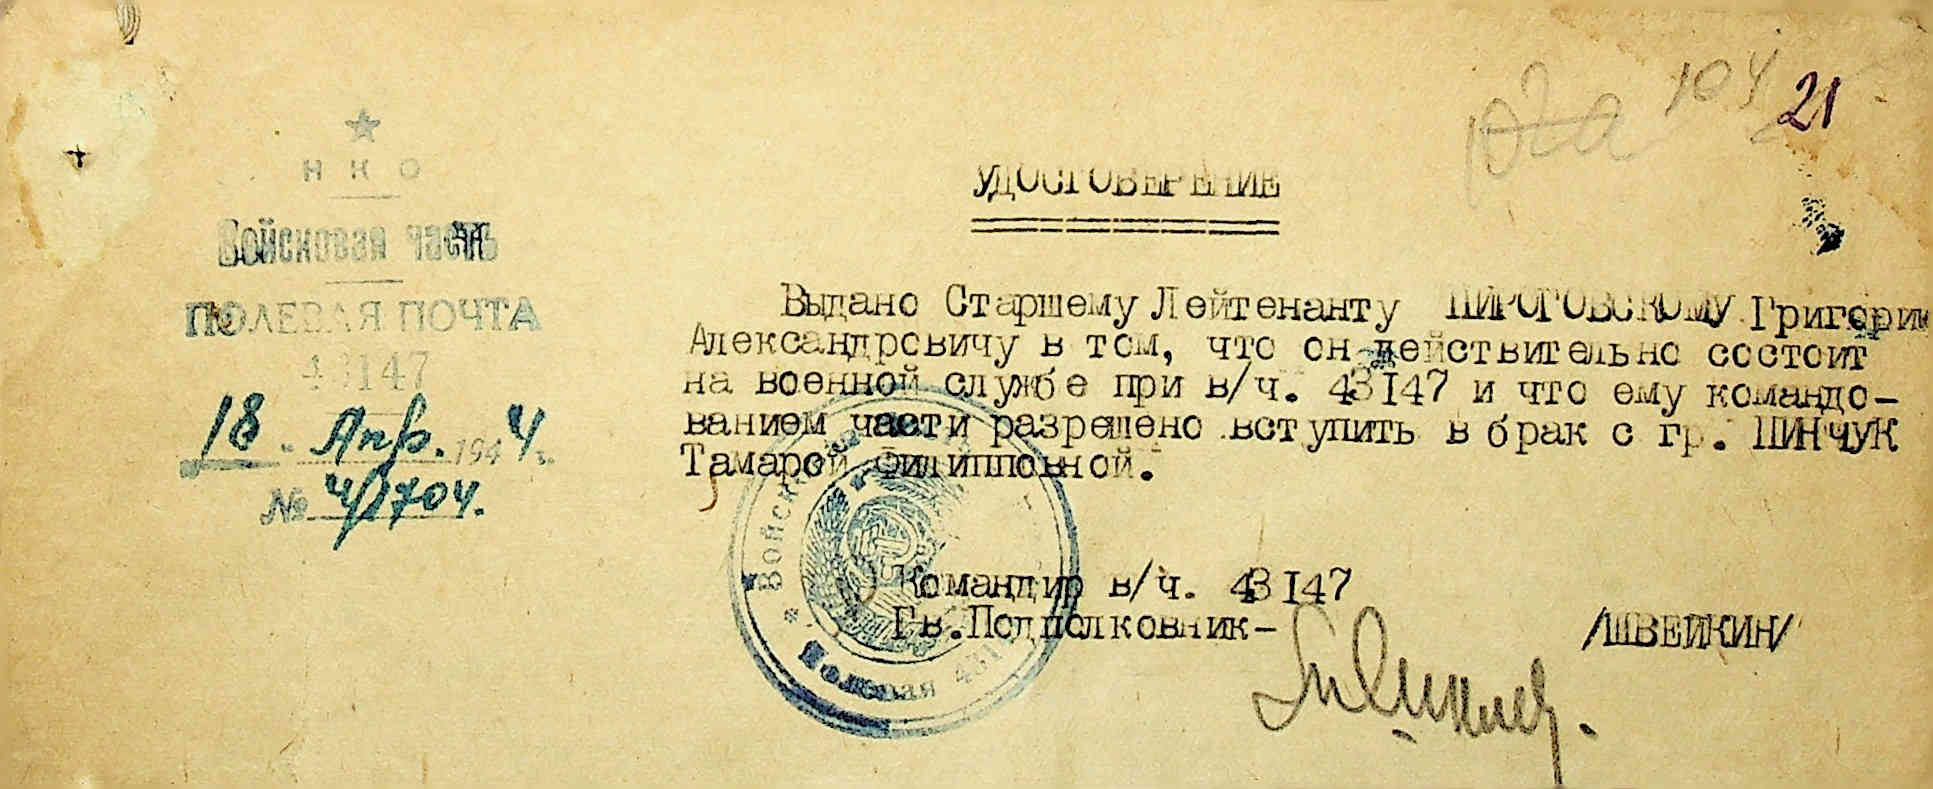 104 21
НКО
Войсковая часть
ПОЛЕВАЯ ПОЧТА
43147
18 - Апр. 1944 г.
№ 4/1704.
УДОСТОВЕРЕНИЕ
Выдано Старшему Лейтенанту ПИРОГОВСКОМУ Григорию
Александровичу в том, что он действительно состоит
на военной службе при в/ч. 43147 и что ему командо-
ванием части разрешено вступить в брак с гр. ПИНЧУК
Тамарой Филипповной.
Командир в/ч. 43147
Гв.Подполковник- /ШВЕЙКИН/
Войсковая
Полевая 43147